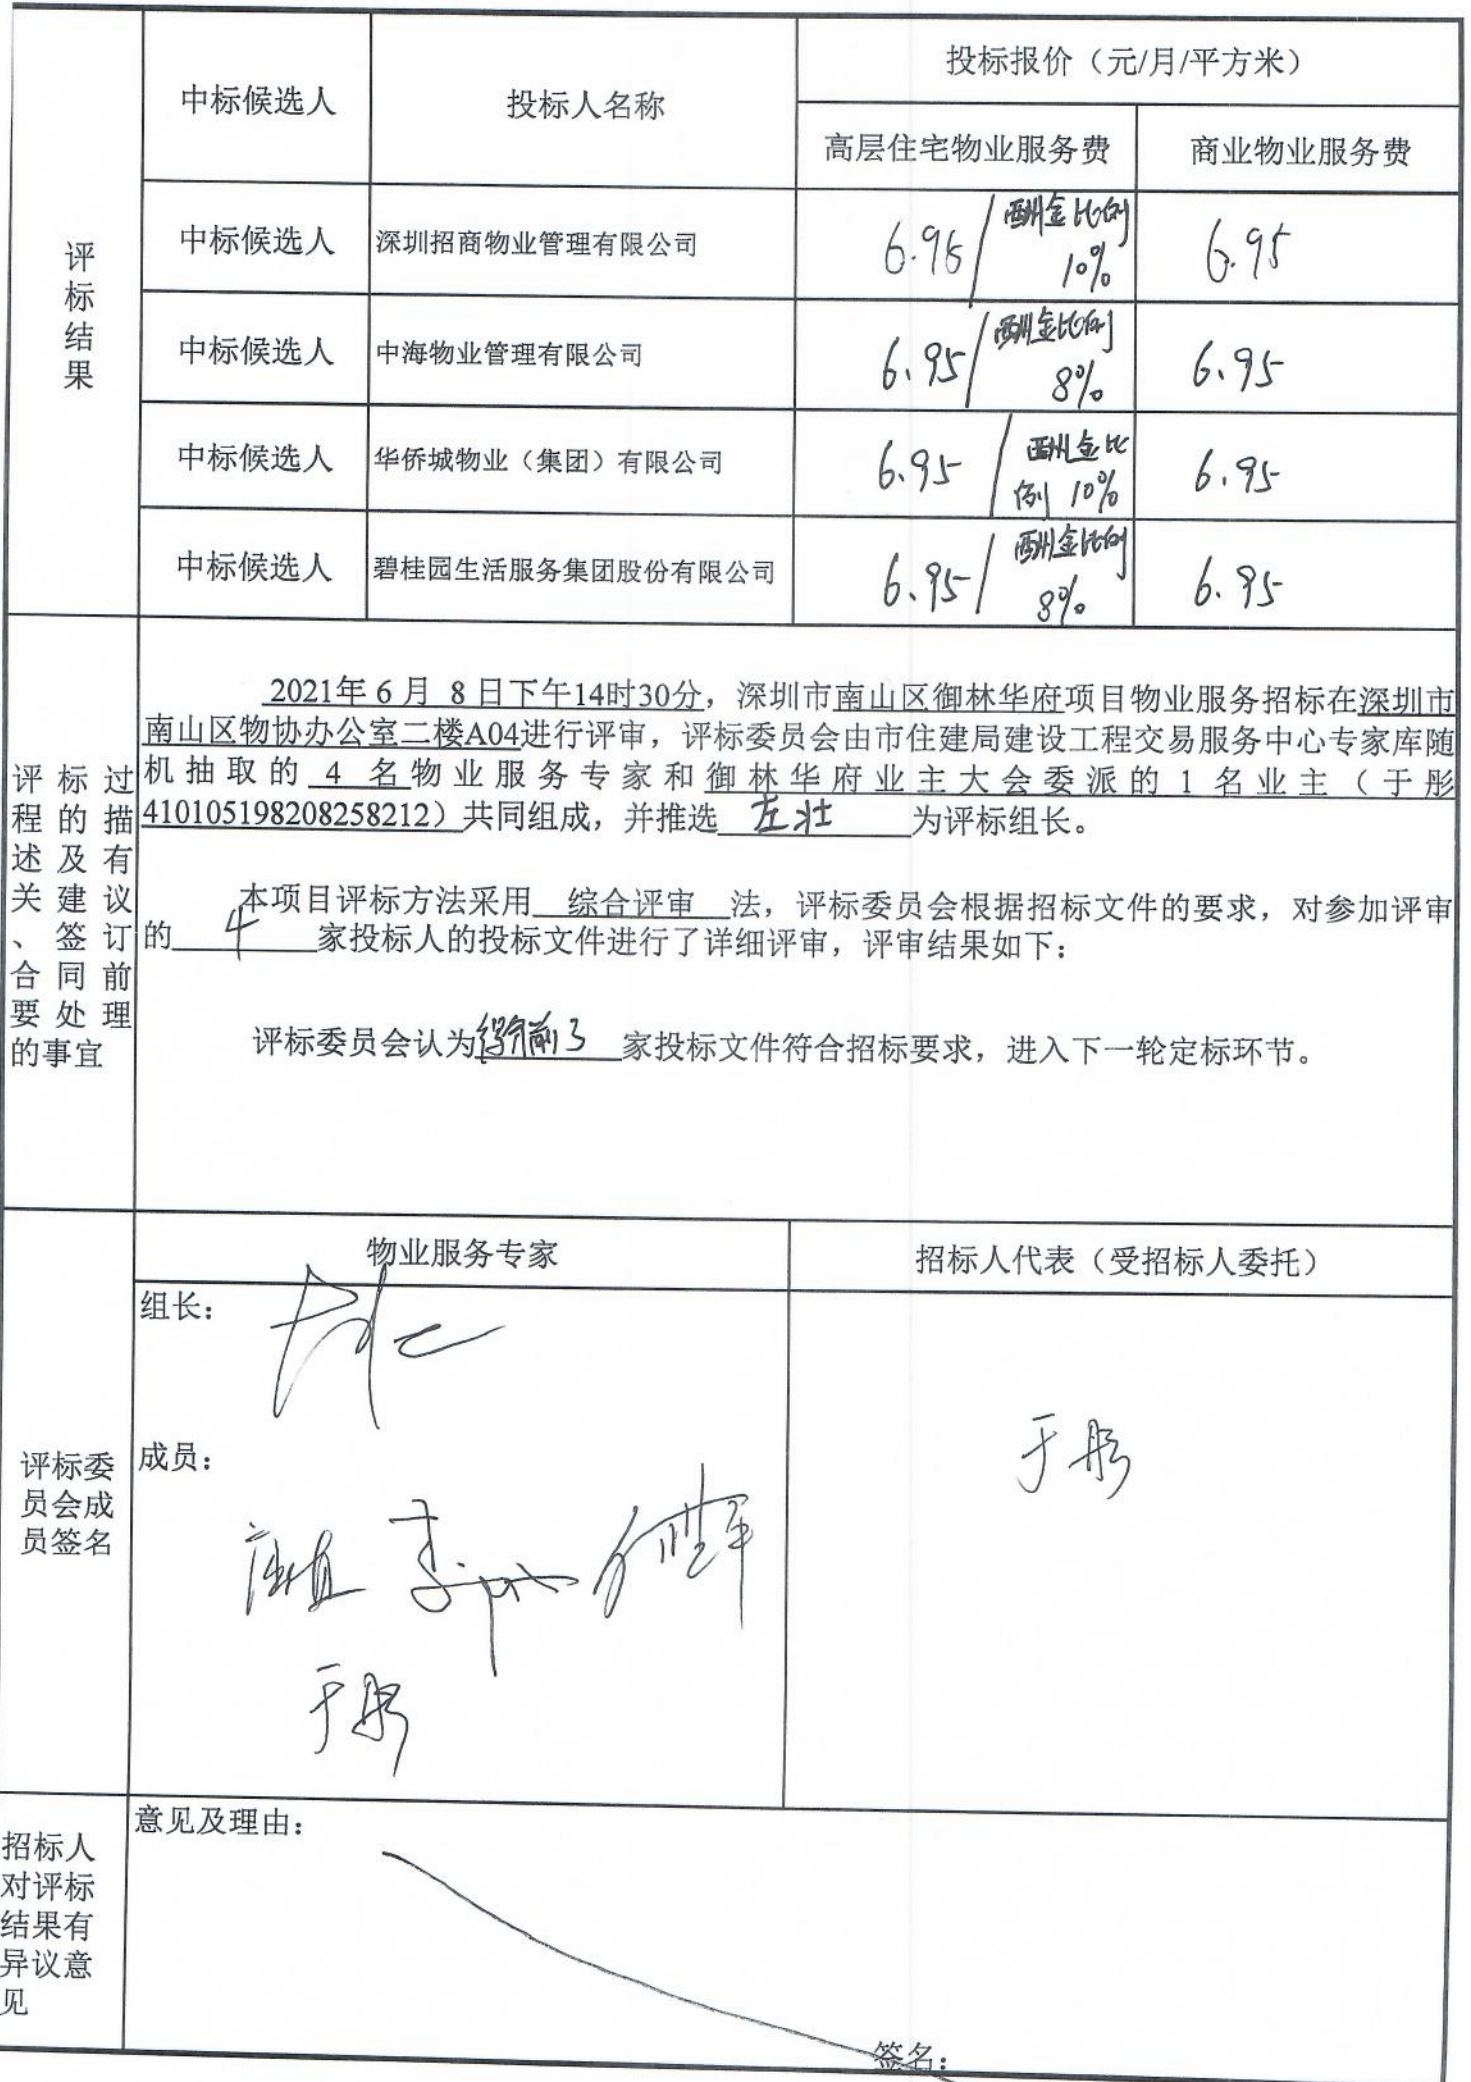 中标候选人
投标人名称
投标报价（元/月/平方米）
高层住宅物业服务费
商业物业服务费
评标结果
中标候选人 深圳招商物业管理有限公司 6.95/酬金比例10% 6.95
中标候选人 中海物业管理有限公司 6.95/酬金比例8% 6.95
中标候选人 华侨城物业（集团）有限公司 6.95/酬金比例10% 6.95
中标候选人 碧桂园生活服务集团股份有限公司 6.95/酬金比例8% 6.95
评标过
程的描
述及有
关建议
、签订
合同前
要处理
的事宜
2021年6月 8日下午14时30分，深圳市南山区御林华府项目物业服务招标在深圳市
南山区物协办公室二楼A04进行评审，评标委员会由市住建局建设工程交易服务中心专家库随
机抽取的 4 名物业服务专家和御林华府业主大会委派的1名业主（于彤
410105198208258212）共同组成，并推选 左壮 为评标组长。
本项目评标方法采用 综合评审 法，评标委员会根据招标文件的要求，对参加评审
的 4 家投标人的投标文件进行了详细评审，评审结果如下：
评标委员会认为 前3 家投标文件符合招标要求，进入下一轮定标环节。
评标委
员会成
员签名
物业服务专家
招标人代表（受招标人委托）
组长：
成员：
于彤
于彤
招标人
对评标
结果有
异议意
见
意见及理由：
签名：